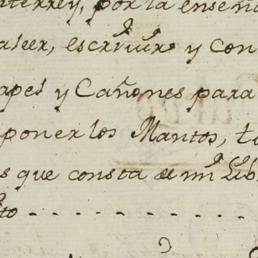 nterrey, por la enseña
aleer, escrivir y con
apel y Cañones para
poner los Mantos, t
s que consta de mi Lib
to - - - - - - - - - -